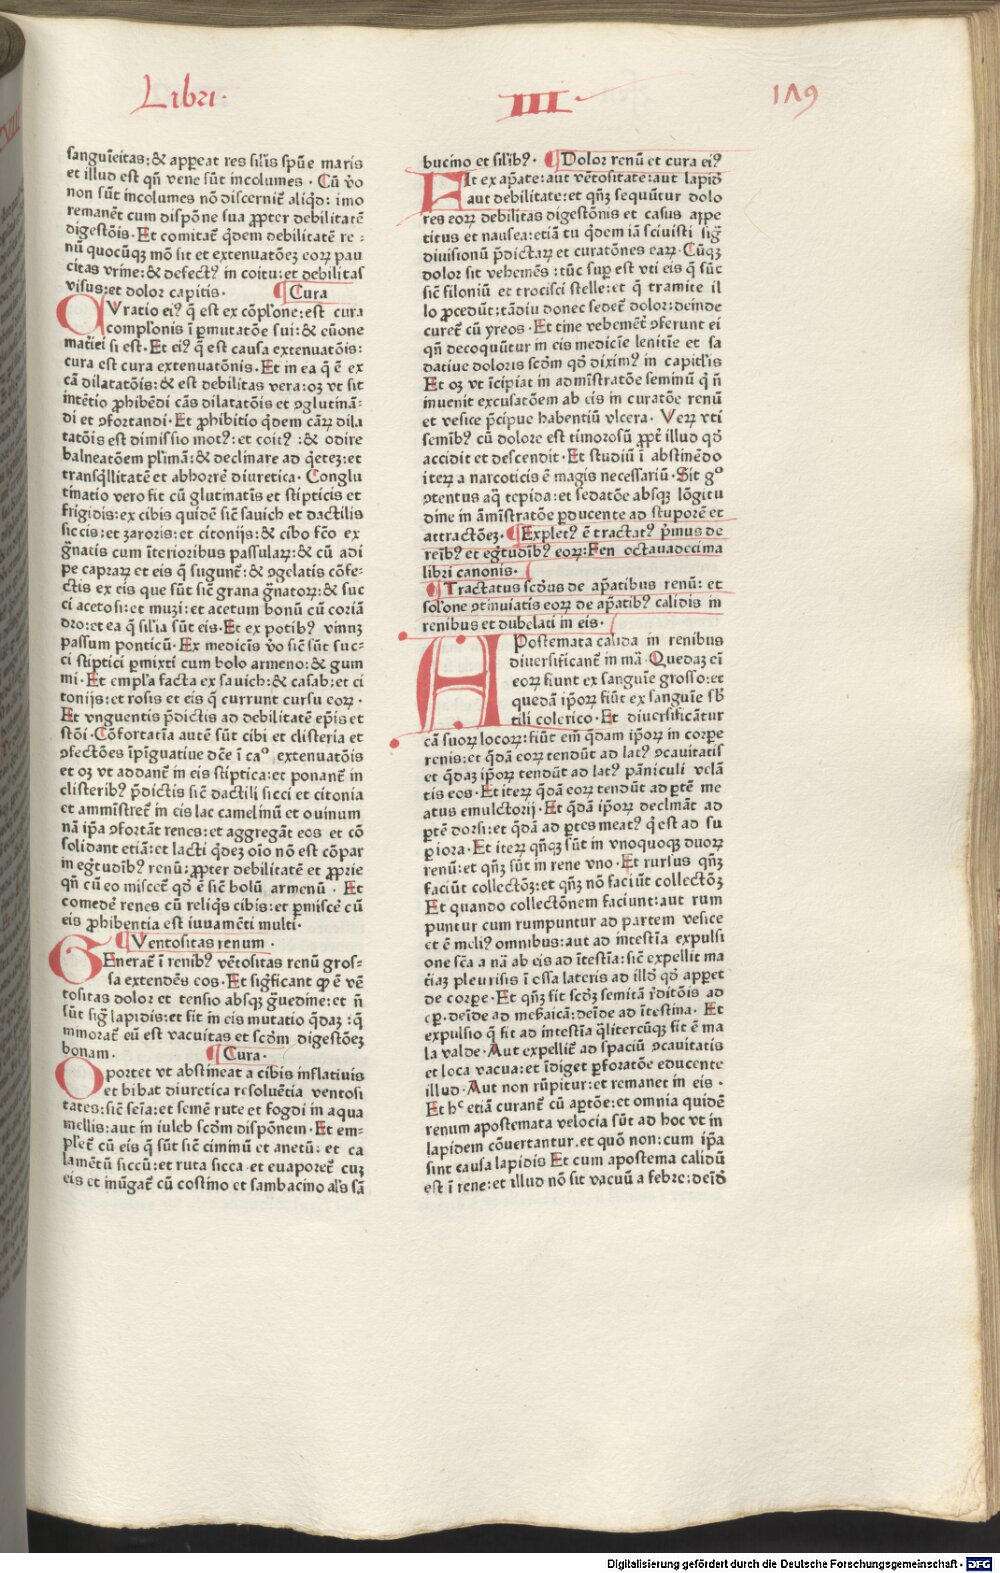 Libri·
III·
189
sanguīeitas:& appeat res silis spūe maris
et illud est qñ vene sūt incolumes · Cū v̄o
non sūt incolumes nō discernit̄ aliqd: imo
remanēt cum dispōne sua ꝓpter debilitatē
digestōis·Et comitat̄ qdem debilitatē re-
nū quocūqꝫ mō sit et extenuatōeꝫ eoꝝ pau
citas vrine:& defectꝰ in coitu:et debilitas
visus:et dolor capitis· ¶Cura
CVratio eiꝰ q̄ est ex cōplōne:est cura
complonis ī pmutatōe sui:& eūone
matiei si est·Et eiꝰ q̄ est causa extenuatōis:
cura est cura extenuatōnis·Et in ea q̄ ē ex
cā dilatatōis:& est debilitas vera:oꝫ vt sit
intētio ꝓhibēdi cās dilatatōis et ꝯglutinā-
di et ꝯfortandi·Et ꝓhibitio qdem cāꝝ dila
tatōis est dimissio motꝰ:et coitꝰ:& odire
balneatōem plimā:& declinare ad q̄teꝫ:et
transq̄llitatē et abhorrē diuretica·Conglu
tinatio vero fit cū glutinatīs et stipticis et
frigidis:ex cibis quidē sic̄ sauich et dactilis
siccis:et zaroris:et citonijs:& cibo fc̄o ex
g̈natis cum īterioribus passulaꝝ:& cū adi
pe capraꝝ et eis q̄ sugunt̄:& ꝯgelatis cōfe-
ctis ex eis que sūt sic̄ grana g̈natoꝝ:& suc
ci acetosi:et muzi:et acetum bonū cū coriā
dro:et ea q̄ silīa sūt eis·Et ex potibꝰ vinuꝫ
passum ponticū·Ex medicīs v̄o sic̄ sūt suc-
ci stiptici pmixti cum bolo armeno:& gum
mi·Et empla facta ex sauich:& casab:et ci
tonijs:et rosis et eis q̄ currunt cursu eoꝝ·
Et vnguentis p̄dictis ad debilitatē ep̄is et
stōi·Cōfortatīa autē sūt cibi et clisteria et
ꝯfectōes īpīguatiue dc̄e ī caº extenuatōis
et oꝫ vt addant̄ in eis stiptica:et ponant̄ in
clisteribꝰ p̄dictis sic̄ dactili sicci et citonia
et ammīstret̄ in eis lac camelinū et ouinum
nā ip̄a ꝯfortāt renes:et aggregāt eos et cō
solidant etiā:et lacti q̄deꝫ oīo nō est cōpar
in eg̈tudībꝰ renū:ꝓpter debilitatē et ꝓprie
qñ cū eo miscet̄ qd̄ ē sic̄ bolū armenū · Et
comedē renes cū reliq̄s cibis:et pmiscē cū
eis ꝓhibentia est iuuamēti multi·
¶Ventositas renum ·
GEnerat̄ ī renibꝰ vētositas renū gros-
sa extendēs eos·Et sig̈ficant qp ē vē
tositas dolor et tensio absqꝫ g̈uedine:et ñ
sūt sig̈ lapidis:et fit in eis mutatio q̄daꝫ:q̄
minorat̄ eū est vacuitas et scd̄m digestōeꝫ
bonam· ¶Cura·
Oportet vt abstineat a cibis inflatiuis
et bibat diuretica resoluētia ventosi
tates:sic̄ sēīa:et semē rute et fogdi in aqua
mellis:aut in iuleb scd̄m dispōnem·Et em-
plet̄ cū eis q̄ sūt sic̄ ciminū et anetū: et ca
lamētū siccū:et ruta sicca et euaporet̄ cuꝫ
eis et inūgat̄ cū costino et sambacino als sā
bucino et silibꝰ· ¶Dolor renū et cura eiꝰ
FIt ex ap̄ate:aut vētositate:aut lapid̄
aut debilitate:et qñꝫ sequūtur dolo
res eoꝝ debilitas digestōnis et casus appe
titus et nausea:etiā tu qdem iā sciuisti sig̈
diuisionū p̄dictaꝝ et curatōnes eaꝝ·Cūqꝫ
dolor sit vehemēs:tūc sup est vti eis q̄ sūt
sic̄ filoniū et trocisci stelle:et q̄ tramite il
lo ꝓcedūt:tādiu donec sedet̄ dolor:deinde
curet̄ cū yreos·Et tine vehemēt̄ ꝯferunt ei
qñ decoquūtur in eis medicīe lenitīe et sa
datiue doloris scd̄m qd̄ diximꝰ in capitlis
Et oꝫ vt īcipiat in admīstratōe seminū q̄ ñ
inuenit excusatōem ab eis in curatōe renū
et vesice p̄cipue habentiū vlcera· Veꝝ vti
semībꝰ cū dolore est timorosū ꝓpt̄ illud qd̄
accidit et descendit·Et studiū ī abstinēdo
iteꝝ a narcoticis ē magis necessariū·Sit gº
ꝯtentus aq̄ tepida:et sedatōe absqꝫ lōgitu
dine in ām̄istratōe pducente ad stuporē et
attractōeꝫ·¶Explet̄ꝰ ē tractatꝰ p̄mus de
renībꝰ et eg̈tudībꝰ eoꝝ:Fen octauadecima
libri canonis·
¶Tractatus scd̄us de ap̄atibus renū: et
solōne ꝯtinuiatis eoꝝ de ap̄atibꝰ calidis in
renibus et dubelati in eis·
APostemata calida in renibus
diuersificant̄ in mā·Quedaꝫ eī
eoꝝ fiunt ex sanguīe grosso:et
quedā ip̄oꝝ fiūt ex sanguīe sb̄
tili colerico·Et diuersificātur
cā suoꝝ locoꝝ:fiūt em̄ q̄dam ip̄oꝝ in corpe
renis:et q̄dā eoꝝ tendūt ad latꝰ ꝯcauitatis
et q̄daꝫ ip̄oꝝ tendūt ad latꝰ pāniculi velā
tis eos·Et iteꝝ q̄dā eoꝝ tendūt ad ptē me
atus emulctorij·Et q̄dā ip̄oꝝ declināt ad
ptē dorsi:et q̄dā ad ptes meatꝰ q̄ est ad su
piora·Et iteꝝ qñqꝫ sūt in vnoquoqꝫ duoꝝ
renū:et qñꝫ sūt in rene vno·Et rursus qñꝫ
faciūt collectōꝫ:et qñꝫ nō faciūt collectōꝫ
Et quando collectōnem faciunt:aut rum
puntur cum rumpuntur ad partem vesice
et ē meliꝰ omnibus:aut ad intestīa expulsi
one fc̄a a nā ab eis ad ītestīa:sic̄ expellit ma
tiaꝫ pleurisis ī ossa lateris ad illd̄ qd̄ appet
de corpe·Et qñꝫ fit scd̄ꝫ semitā r̄ditōis ad
ep̄·deīde ad meseraicā:deīde ad ītestina· Et
expulsio q̄ fit ad intestīa q̄litercūqꝫ fit ē ma
la valde·Aut expellit̄ ad spaciū ꝯcauitatis
et loca vacua:et īdiget pforatōe educente
illud·Aut non rūpitur:et remanet in eis·
Et hᶜ etiā curant̄ cū aptōe:et omnia quidē
renum apostemata velocia sūt ad hoc vt in
lapidem cōuertantur·et quō non:cum ip̄a
sint causa lapidis Et cum apostema calidū
est ī rene:et illud nō sit vacuū a febre:deīd̄
Digitalisierung gefördert durch die Deutsche Forschungsgemeinschaft - DFG